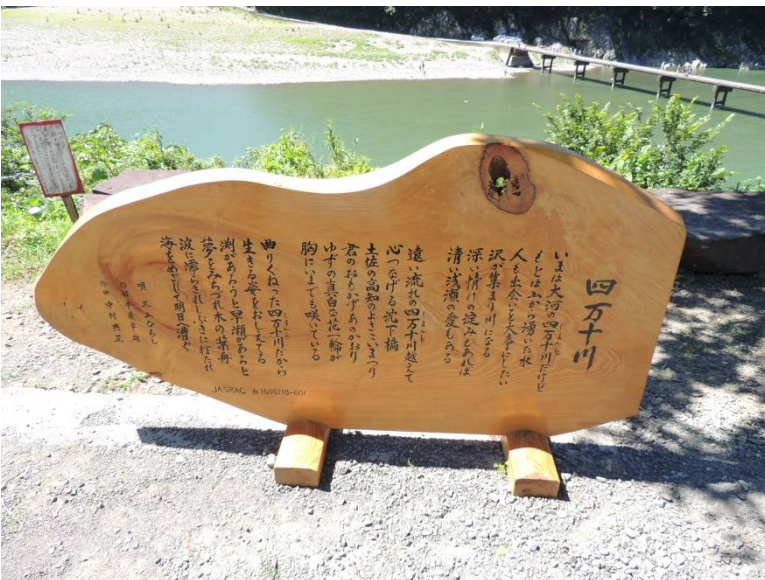 四万十川
いまは大河の四万十川だけど
もとは山から湧いた水
人も出会いも大事にしたい
沢が集まり川になる
深い情けの淀みもあれば
清い浅瀬の愛もある
遠い流れの四万十川越えて
心つなげる沈下橋
土佐の高知のよさこいまつり
君のおもかげあのかおり
ゆずの真白な花一輪が
胸にいまでも咲いている
曲りくねった四万十川だから
生きる姿をおしえてる
渕があろうと早瀬があろと
夢をみちづれ木の葉舟
波に濡らされしぶきに打たれ
海をめざして明日へ漕ぐ
唄 三山ひろし
作曲 中村典正
JASRAC